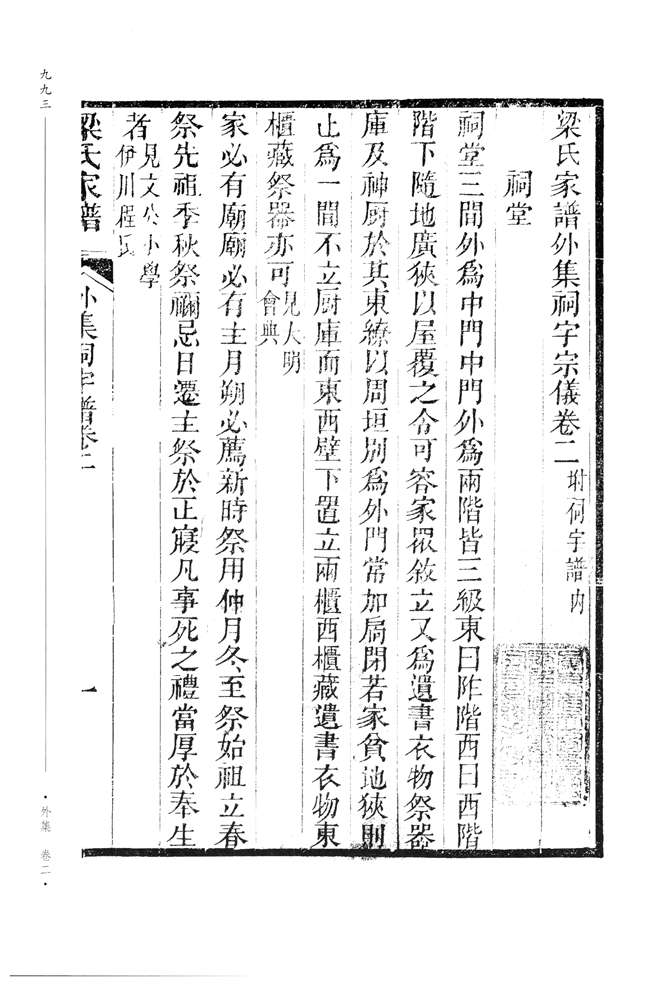 梁氏家譜外集祠宇宗儀卷二 附祠宇譜內
祠堂
祠堂三間外爲中門中門外爲兩階皆三級東曰阼階西曰西階
階下隨地廣狹以屋覆之令可容家眾敘立又爲遺書衣物祭器
庫及神厨於其東繚以周垣別爲外門常加扃閉若家貧地狹則
止爲一間不立厨庫而東西壁下置立兩櫃西櫃藏遺書衣物東
櫃藏祭器亦可 見大明會典
家必有廟廟必有主月朔必薦新時祭用仲月冬至祭始祖立春
祭先祖季秋祭禰忌日遷主祭於正寢凡事死之禮當厚於奉生
者 見文公小學伊川程氏
梁氏家譜 外集祠宇譜卷二 一
九九三
·外集 卷二·